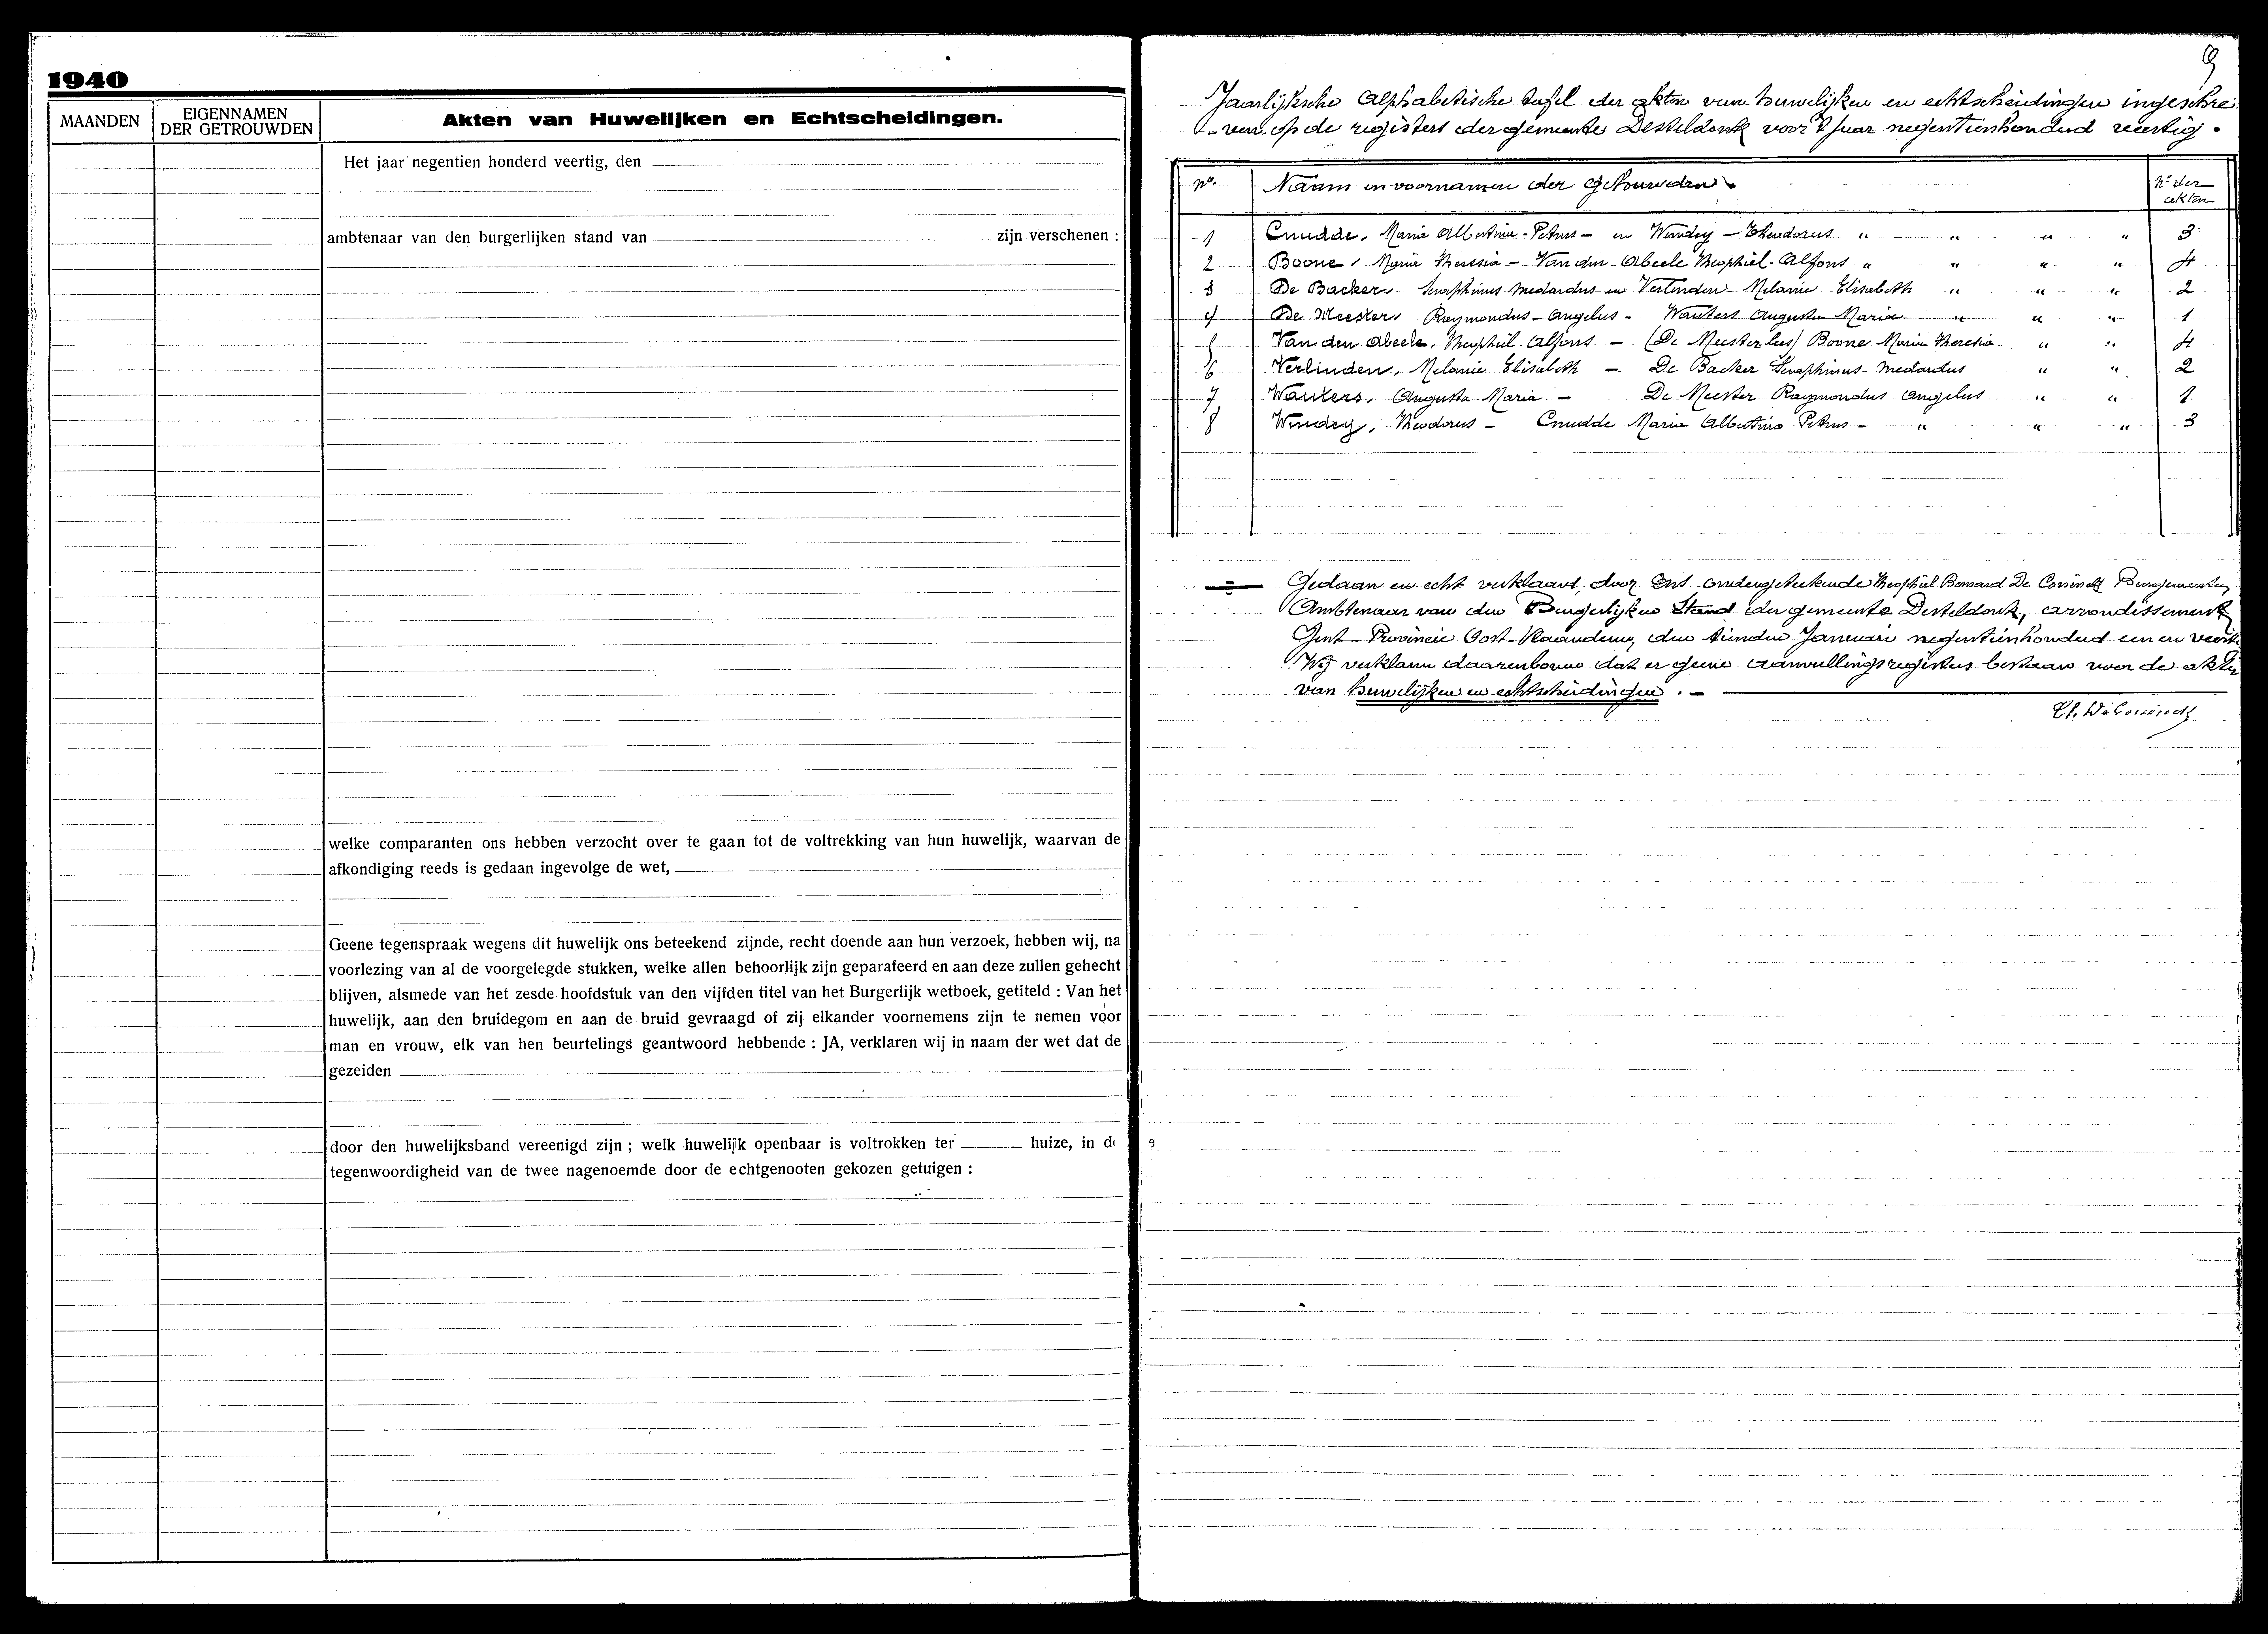 1940
MAANDEN
EIGENNAMEN
DER GETROUWDEN
Akten van Huwelijken en Echtscheidingen.
Het jaar negentien honderd veertig, den
ambtenaar van den burgerlijken stand van zijn verschenen :
welke comparanten ons hebben verzocht over te gaan tot de voltrekking van hun huwelijk, waarvan de
afkondiging reeds is gedaan ingevolge de wet,
Geene tegenspraak wegens dit huwelijk ons beteekend zijnde, recht doende aan hun verzoek, hebben wij, na
voorlezing van al de voorgelegde stukken, welke allen behoorlijk zijn geparafeerd en aan deze zullen gehecht
blijven, alsmede van het zesde hoofdstuk van den vijfden titel van het Burgerlijk wetboek, getiteld : Van het
huwelijk, aan den bruidegom en aan de bruid gevraagd of zij elkander voornemens zijn te nemen voor
man en vrouw, elk van hen beurtelings geantwoord hebbende : JA, verklaren wij in naam der wet dat de
gezeiden
door den huwelijksband vereenigd zijn ; welk huwelijk openbaar is voltrokken ter huize, in de
tegenwoordigheid van de twee nagenoemde door de echtgenooten gekozen getuigen :
9
Jaarlijksche Alphabetische tafel der akten van huwelijken en echtscheidingen ingeschre
-ven op de registers der gemeente Desteldonk voor 't jaar negentienhonderd veertig.
No. Naam en voornamen der Getrouwden. No der akten
1 Cnudde, Maria Albertina-Petrus - en Windey - Theodorus " " " " 3
2 Boone, Maria Theresia - Van den Abeele Theophiel-Alfons " " " " 4
3 De Backer, Seraphinus Medardus en Verlinden Melanie Elisabeth " " " 2
4 De Meester, Raymondus-Angelus - Wauters Augusta Maria " " " 1
5 Van den Abeele, Theophiel Alfons - Boone Maria Theresia " " 4
6 Verlinden, Melanie Elisabeth - De Backer Seraphinus Medardus " " 2
7 Wauters, Augusta Maria - De Meester Raymondus Angelus " " 1
8 Windey, Theodorus - Cnudde Maria Albertina Petrus - " " " 3
Gedaan en echt verklaard, door Ons ondergeteekende Theophiel Bernard De Coninck Burgemeester,
Ambtenaar van den Burgerlijken Stand der gemeente Desteldonk, arrondissement
Gent - Provincie Oost-Vlaanderen, den tienden Januari negentienhonderd een en veertig
Wij verklaren daarenboven dat er geene aanvullingsregisters bestaan voor de akten
van huwelijken en echtscheidingen. -
Th. De Coninck